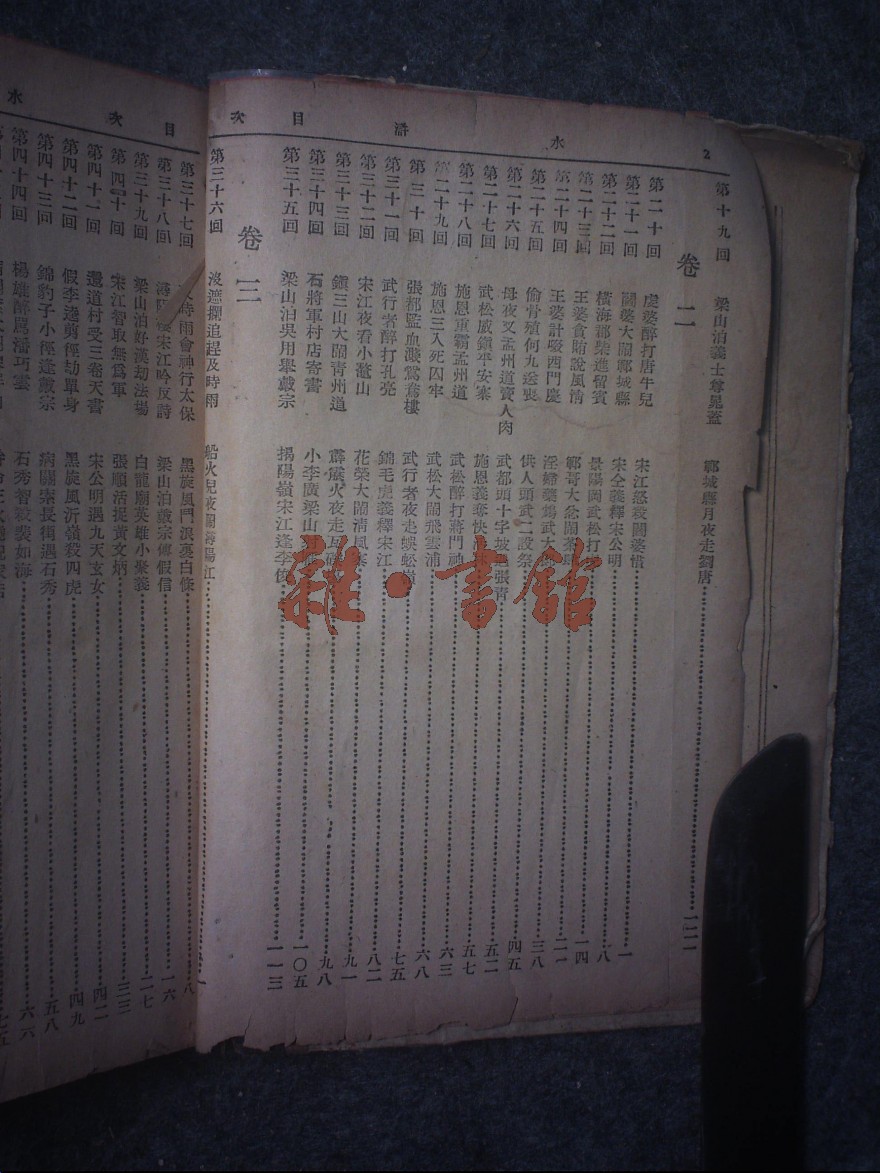 2 水滸 目次
第十九回 梁山泊義士尊晁蓋 鄆城縣月夜走劉唐 一二一
卷二
第二十回 虔婆醉打唐牛兒 宋江怒殺閻婆惜 一
第二十一回 閻婆大鬧鄆城縣 宋仝義釋宋公明 八
第二十二回 橫海郡柴進留賓 景陽岡武松打 一四
第二十三回 王婆貪賄說風情 鄆哥大忿鬧茶 二一
第二十四回 王婆計啜西門慶 淫婦藥鴆武大
第二十五回 偷骨殖何九送喪 供人頭武二設祭 三八
第二十六回 母夜叉孟州道賣人肉 武都頭十字坡 張青 四五
第二十七回 武松威鎮平安寨 施恩義奪快 五二
第二十八回 施恩重霸孟州道 武松醉打蔣門神 五七
第二十九回 施恩三入死囚牢 武松大鬧飛雲浦 六三
第三十回 張都監血濺鴛鴦樓 武行者夜走蜈蚣嶺 六八
第三十一回 武行者醉打孔亮 錦毛虎義釋宋江 七五
第三十二回 宋江夜看小鰲山 花榮大鬧清風寨 八二
第三十三回 鎮三山大鬧青州道 霹靂火夜走瓦礫 九一
第三十四回 石將軍村店寄書 小李廣梁山 九八
第三十五回 梁山泊吳用舉戴宗 揭陽嶺宋江逢李俊 一〇五
一一三
卷三
第三十六回 沒遮攔追趕及時雨 船火兒夜鬧潯陽江 一
目次 水
第三十七回 及時雨會神行太保 黑旋風鬥浪裏白條 八
第三十八回 潯陽樓宋江吟反詩 梁山泊戴宗傳假信 一六
第三十九回 梁山泊好漢劫法場 白龍廟英雄小聚義 二七
第四十回 宋江智取無為軍 張順活捉黃文炳 三三
第四十一回 還道村受三卷天書 宋公明遇九天玄女 四二
第四十二回 假李逵剪徑劫單身 黑旋風沂嶺殺四虎 四九
第四十三回 錦豹子小徑逢戴宗 病關索長街遇石秀 五八
第四十四回 楊雄醉罵潘巧雲 石秀智殺裴如海 六六
雜·書館